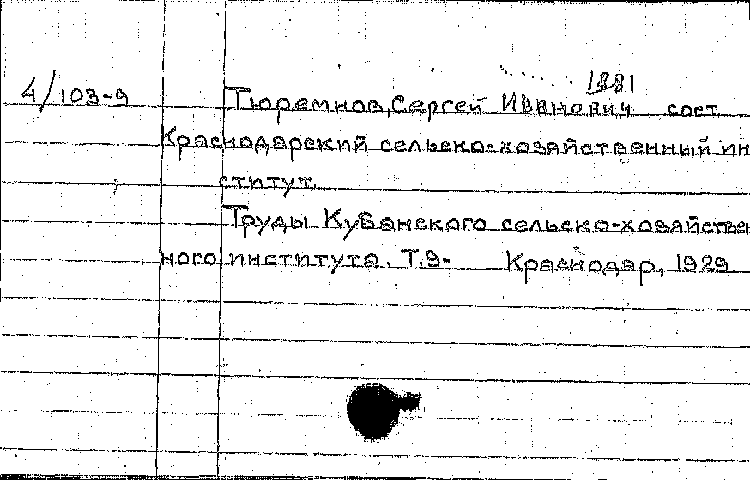 1881
4/103-9 Тюремнов, Сергей Иванович сост.
Краснодарский сельско-хозяйственный ин
ститут.
Труды Кубанского сельско-хозяйствен
ного института. Т.9- Краснодар, 1929